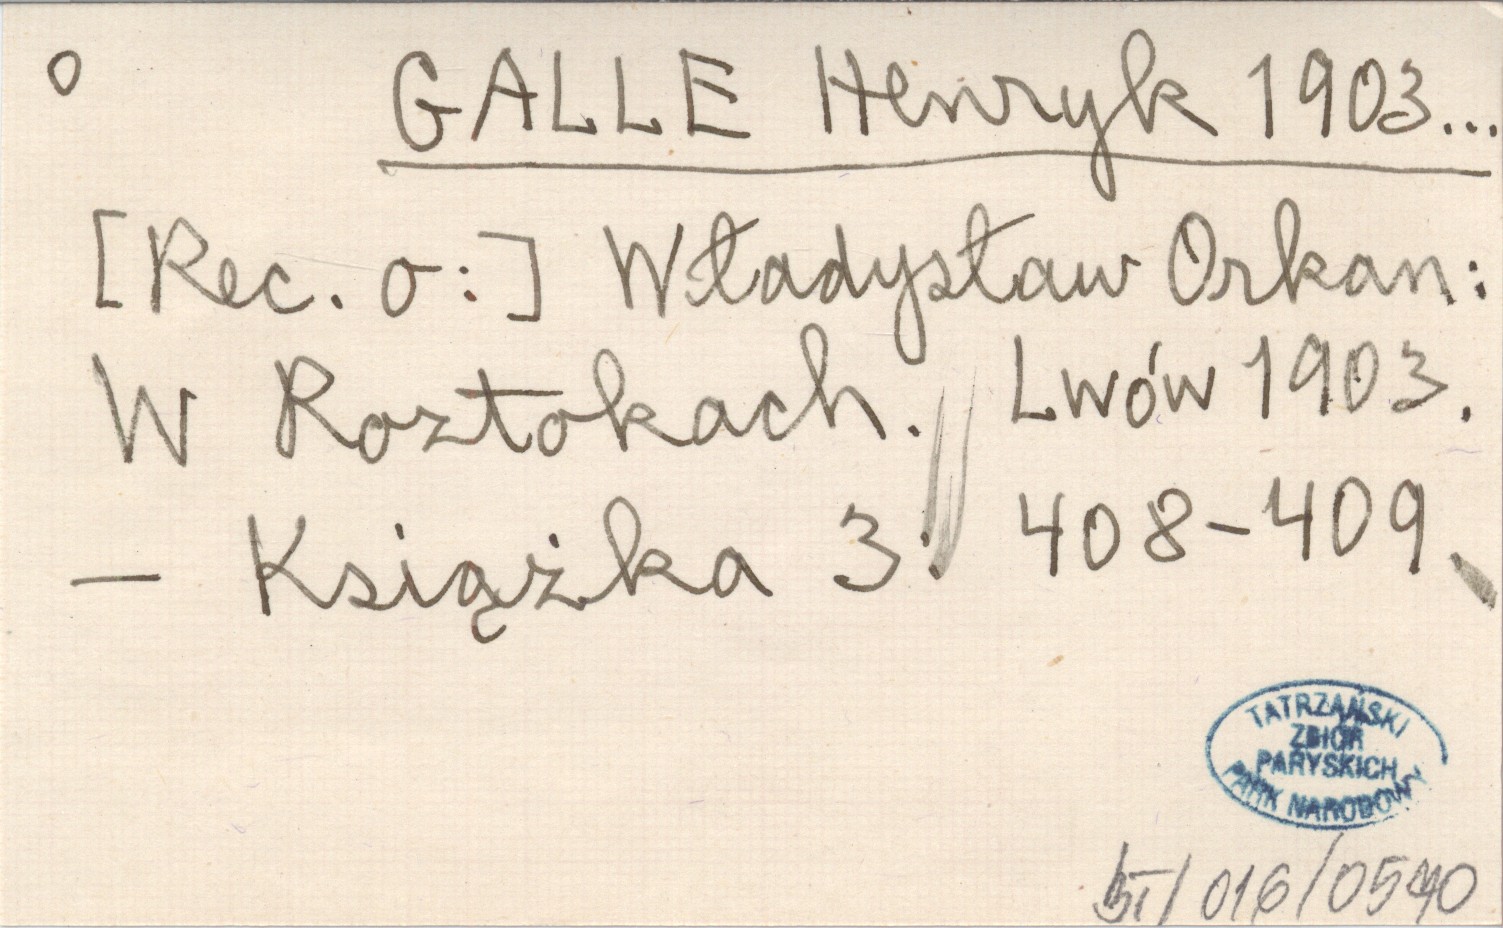 o GALLE Henryk 1903...
[Rec. o:] Władysław Orkan:
W Roztokach. Lwów 1903.
– Książka 3: 408-409
TATRZAŃSKI
ZBIÓR
PARYSKICH
PARK NARODOWY
/016/0540